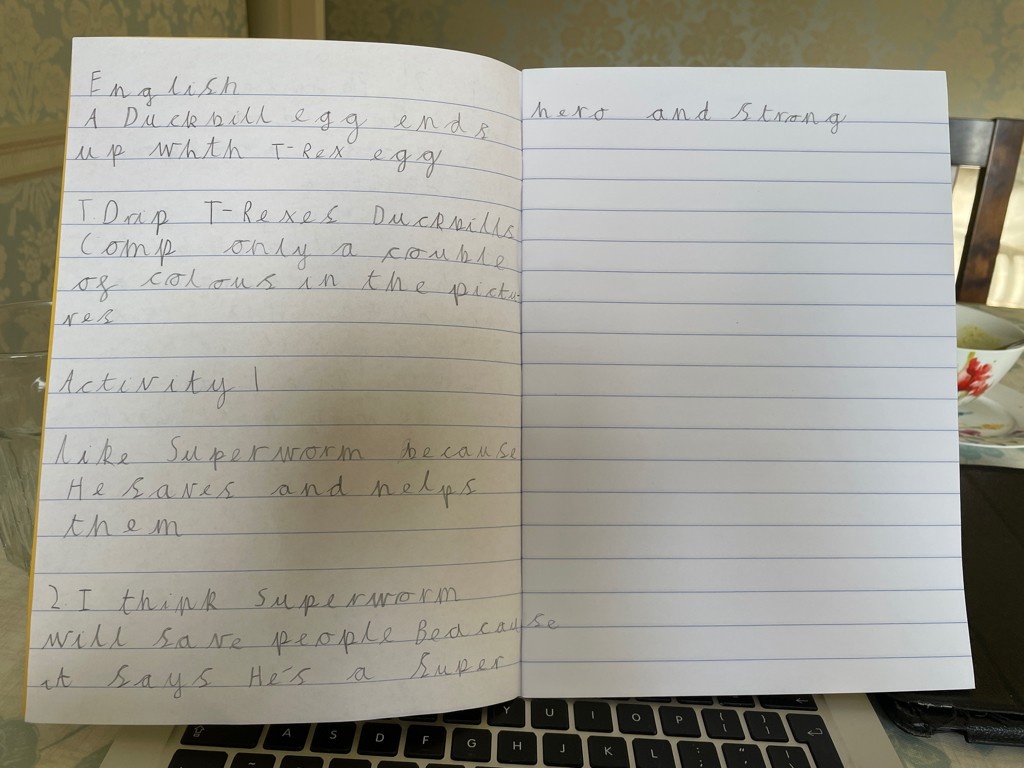 English
A Duckbill egg ends
up whth T-Rex egg
T.Drip T-Rexes Duckbills
Comp only a couble
of colous in the pictu-
res
Activity 1
like Superworm because
He saves and helps
them
2 I think Superworm
will save people Beacause
it says He's a Super
hero and strong
Y U I O P { [ } ]
A S D F G H J K L : ; " '